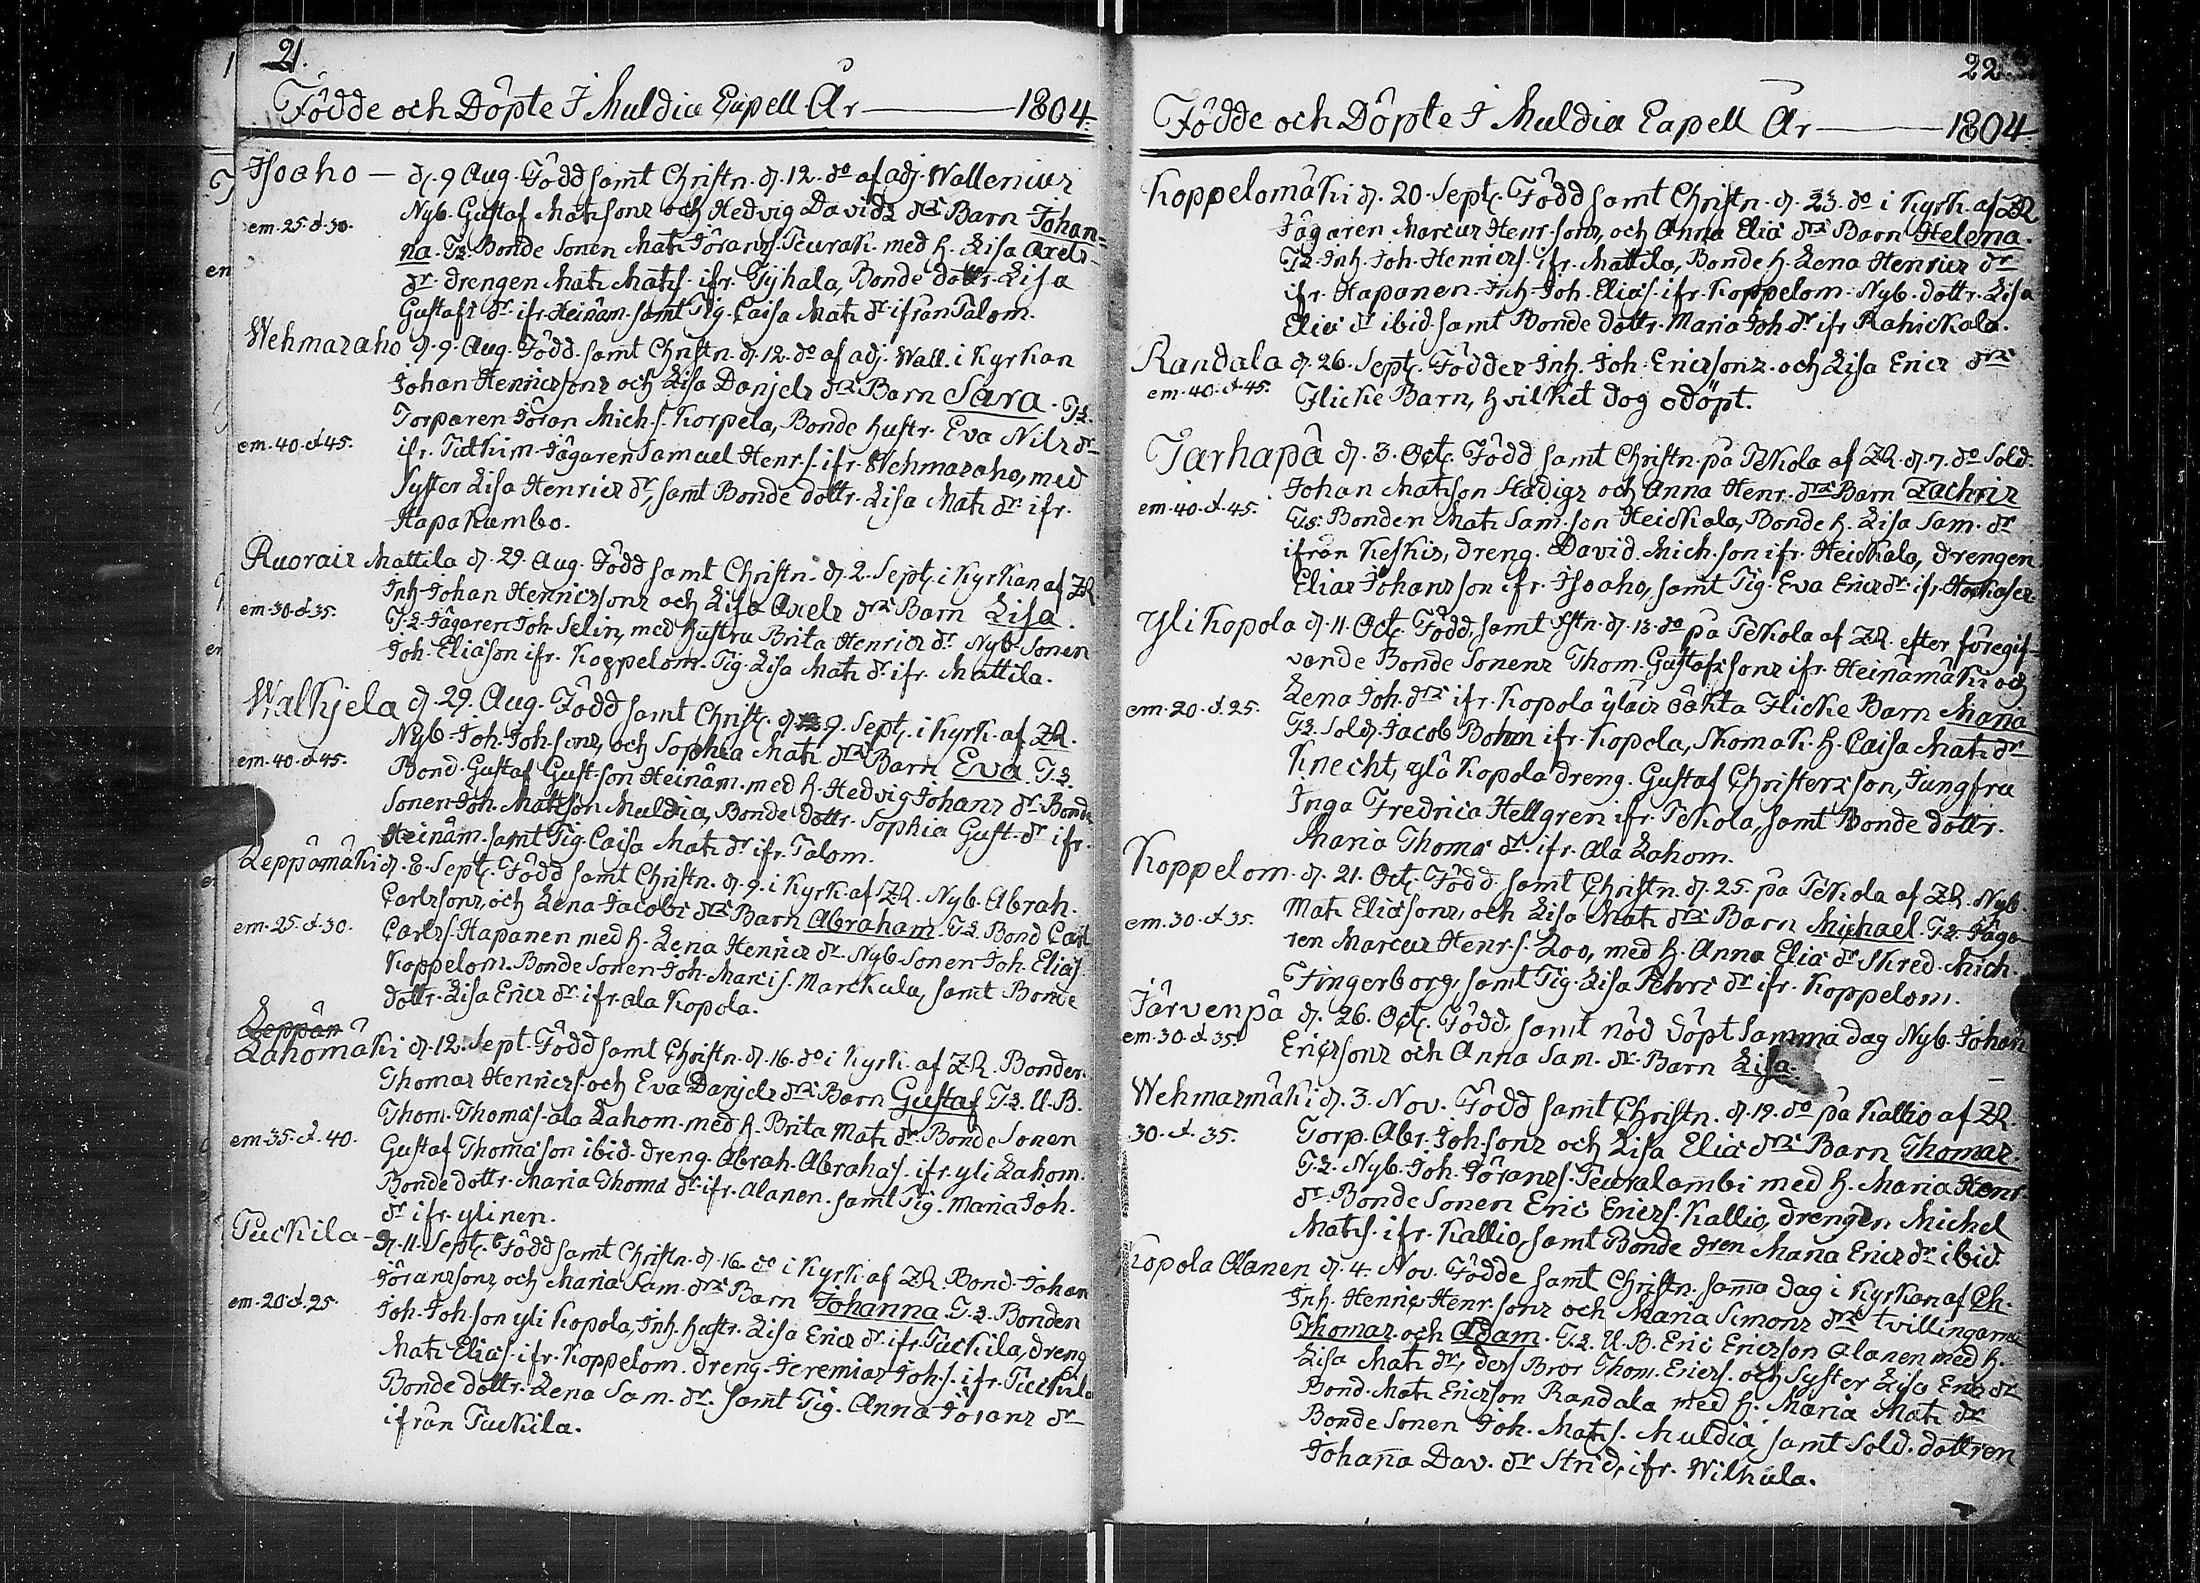 21.
Födde och Döpte I Muldia Capell År 1804.
Isoaho — d. 9 Aug. Född samt Christn. d. 12. do af adj. Wallenius
Nyb. Gustaf Matsons och Hedvig Davids drs Barn Johan=
em. 25. d. 30.
na. Ts. Bonde Sonen Mats Jörans. Teurak. med h. Lisa Axels
dr. drengen Mats Mats. ifr. Tyhala, Bonde dottr. Lisa
Gustafs dr. ifr. Heinäm. samt Pig. Caisa Mats dr ifrån Talom.
Wehmasaho d. 9. Aug. Född samt Christn. d. 12. do af adj. Wall. i Kyrkan
Johan Henricsons och Lisa Danjels drs Barn Sara. Ts.
Torparen Jöran Mich.s. Korpela, Bonde hustr. Eva Nils dr
em. 40. d. 45.
ifr. Jägaren Samuel Henr.s. ifr. Wehmasaho, med
Syster Lisa Henrics dr, samt Bonde dottr. Lisa Mats dr. ifr.
Hapakumbo.
Ruorais Mattila d. 29. Aug. Född samt Christn. d. 2. Sept. i Kyrkan af ZR
Inh. Johan Henricsons och Lisa Axels drs Barn Lisa.
em. 30. d. 35.
Ts. Jägaren Joh. Selin, med hustru Brita Henrics dr. Nyb. Sonen
Joh. Eliason ifr. Koppelom. Pig. Lisa Mats dr. ifr. Mattila.
Walkjela d. 29. Aug. Född samt Christ. d. 9. Sept. i Kyrk. af ZR.
Nyb. Joh. Joh.sons, och Sophia Mats drs Barn Eva. Ts.
em. 40. d. 45.
Bond. Gustaf Gust.son Heinäm. med h. Hedvig Johans dr. Bonde
Sonen Joh. Matsson Muldia, Bonde dottr. Sophia Gust. dr ifr.
Heinäm. samt Pig. Caisa Mats dr ifr. Talom.
Leppämäki d. 8. Sept. Född samt Christn. d. 9. i Kyrk. af ZR. Nyb. Abrah.
Carlssons, och Lena Jacobs drs Barn Abraham. Ts. Bond Carl
em. 25. d. 30.
Carlss. Hapanen med h. Lena Henrics dr. Nyb. Sonen Joh. Elias.
Koppelom. Bonde Sonen Joh. Marcis. Marckula, samt Bonde
dottr. Lisa Erics dr. ifr. ala Kopola.
Leppän
Lahomäki d. 12. Sept. Född samt Christn. d. 16. do i Kyrk. af ZR. Bonden
Thomas Henrics. och Eva Danjels drs Barn Gustaf Ts. U.B.
Thom. Thomas. ala Lahom. med h. Brita Mats dr. Bonde Sonen
em. 35. d. 40.
Gustaf Thomason ibid. dreng. Abrah. Abrahas. ifr. yli Lahom.
Bonde dottr. Maria Thoms dr. ifr. Alanen. samt Pig. Maria Joh.
dr ifr. ylinen.
Tuckila — d. 11. Sept. Född samt Christn. d. 16. do i Kyrk. af ZR. Bond. Johan
Jöranssons, och Maria Sam. drs Barn Johanna. Ts. Bonden
em. 20. d. 25.
Joh. Joh.son yli Kopola, Inh. hustr. Lisa Erics dr. ifr. Tuckila, dreng
Mats Elias. ifr. Koppelom. dreng. Jeremias Joh.s. ifr. Tuckila
Bonde dottr. Lena Sam. dr. samt Pig. Anna Jörans dr
ifrån Tuckila.
22.
Födde och Döpte I Muldia Capell År 1804.
Koppelomäki d. 20. Sept. Född samt Christn. d. 23. do i Kyrk. af ZR
Jägaren Marcus Henr.sons, och Anna Elias drs Barn Helena.
Ts. Inh. Joh. Henrics. ifr. Mattila, Bonde h. Lena Henrics dr
ifr. Hapanen. Inh. Joh. Elias. ifr. Koppelom. Nyb. dottr. Lisa
Elias dr ibid. samt Bonde dottr. Maria Joh. dr ifr. Rahickala.
Randala d. 26. Sept. Föddes Inh. Joh. Ericsons. och Lisa Erics drs
em. 40. d. 45.
Flicke Barn, hvilket dog odöpt.
Jarhapä d. 3. Oct. Född samt Christn. på Pekola af ZR. d. 7. do Sold.
Johan Matson Stadigs och Anna Henr. drs Barn Zachris
em. 40. d. 45.
Ts. Bonden Mats Sam.son Heickala, Bonde h. Lisa Sam. dr
ifrån Keskis, dreng. David Mich.son ifr. Heickala, drengen
Elias Johansson ifr. Isoaho, samt Pig. Eva Erics dr. ifr.
Ylikopola d. 11. Oct. Född, samt Xstn. d. 13. do på Pekola af ZR. efter föregif-
vande Bonde Sonens Thom. Gustafssons ifr. Heinämäki och
em. 20. d. 25.
Lena Joh. drs ifr. Kopola yläis oäkta Flicke Barn Maria
Ts. Sold. Jacob Bohm ifr. Kopola, Skomak. h. Caisa Mats dr
Knecht, ylä Kopola dreng. Gustaf Christersson, Jungfru
Inga Fredrica Hellgren ifr. Pekola, samt Bonde dottr.
Maria Thoms dr. ifr. ala Lahom.
Koppelom. d. 21. Oct. Född samt Christn. d. 25. på Pekola af ZR. Nyb.
Mats Eliasons, och Lisa Mats drs Barn Michael. Ts. Jäga-
em. 30. d. 35.
ren Marcus Henr.s. Loo, med h. Anna Elias dr Skred. Mich.
Fingerborg, samt Pig. Lisa Pehrs dr ifr. Koppelom.
Järvenpä d. 26. Oct. Född, samt nöd döpt samma dag Nyb. Johan
em. 30. d. 35.
Ericsons och Anna Sam. dr. Barn Lisa.
Wehmasmäki d. 3. Nov. Född samt Christn. d. 19. do på Kallio af ZR.
30. d. 35.
Torp. Abr. Joh.sons och Lisa Elias drs Barn Thomas.
Ts. Nyb. Joh. Jöranss. Teuralambi med h. Maria Henr.
dr. Bonde Sonen Eric Erics. Kallio, drengen Michel
Mats. ifr. Kallio, samt Bonde dren Maria Erics dr ibid.
Kopola Alanen d. 4. Nov. Födde samt Christn. sama dag i Kyrkan af Ch.
Inh. Henric Henr.sons och Maria Simons drs tvillingarne
Thomas och Adam. Ts. U.B. Eric Ericson Alanen med h.
Lisa Mats dr, dess Bror Thom. Erics. och Syster Lisa Erics dr
Bond. Mats Ericson Randala med h. Maria Mats dr
Bonde Sonen Joh. Mats. Muldia, samt Sold. dottren
Johana Dav. dr Strid, ifr. Wilhula.